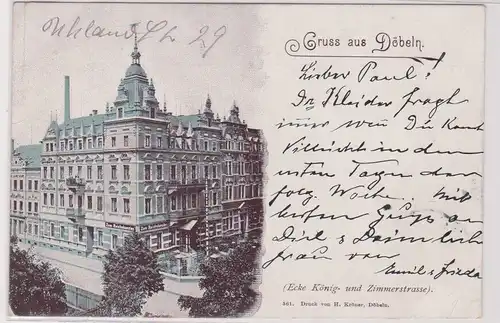 Uhland St 29
Gruss aus Döbeln.
Lieber Paul!
Dr. Kleider fragt
immer wen Du kamst
Villeicht in den
ersten Tagen der
folg. Woche. Mit
besten Gruss an
Dich &
von
Emil & Frieda
(Ecke König- und Zimmerstrasse).
561. Druck von H. Köhner, Döbeln.